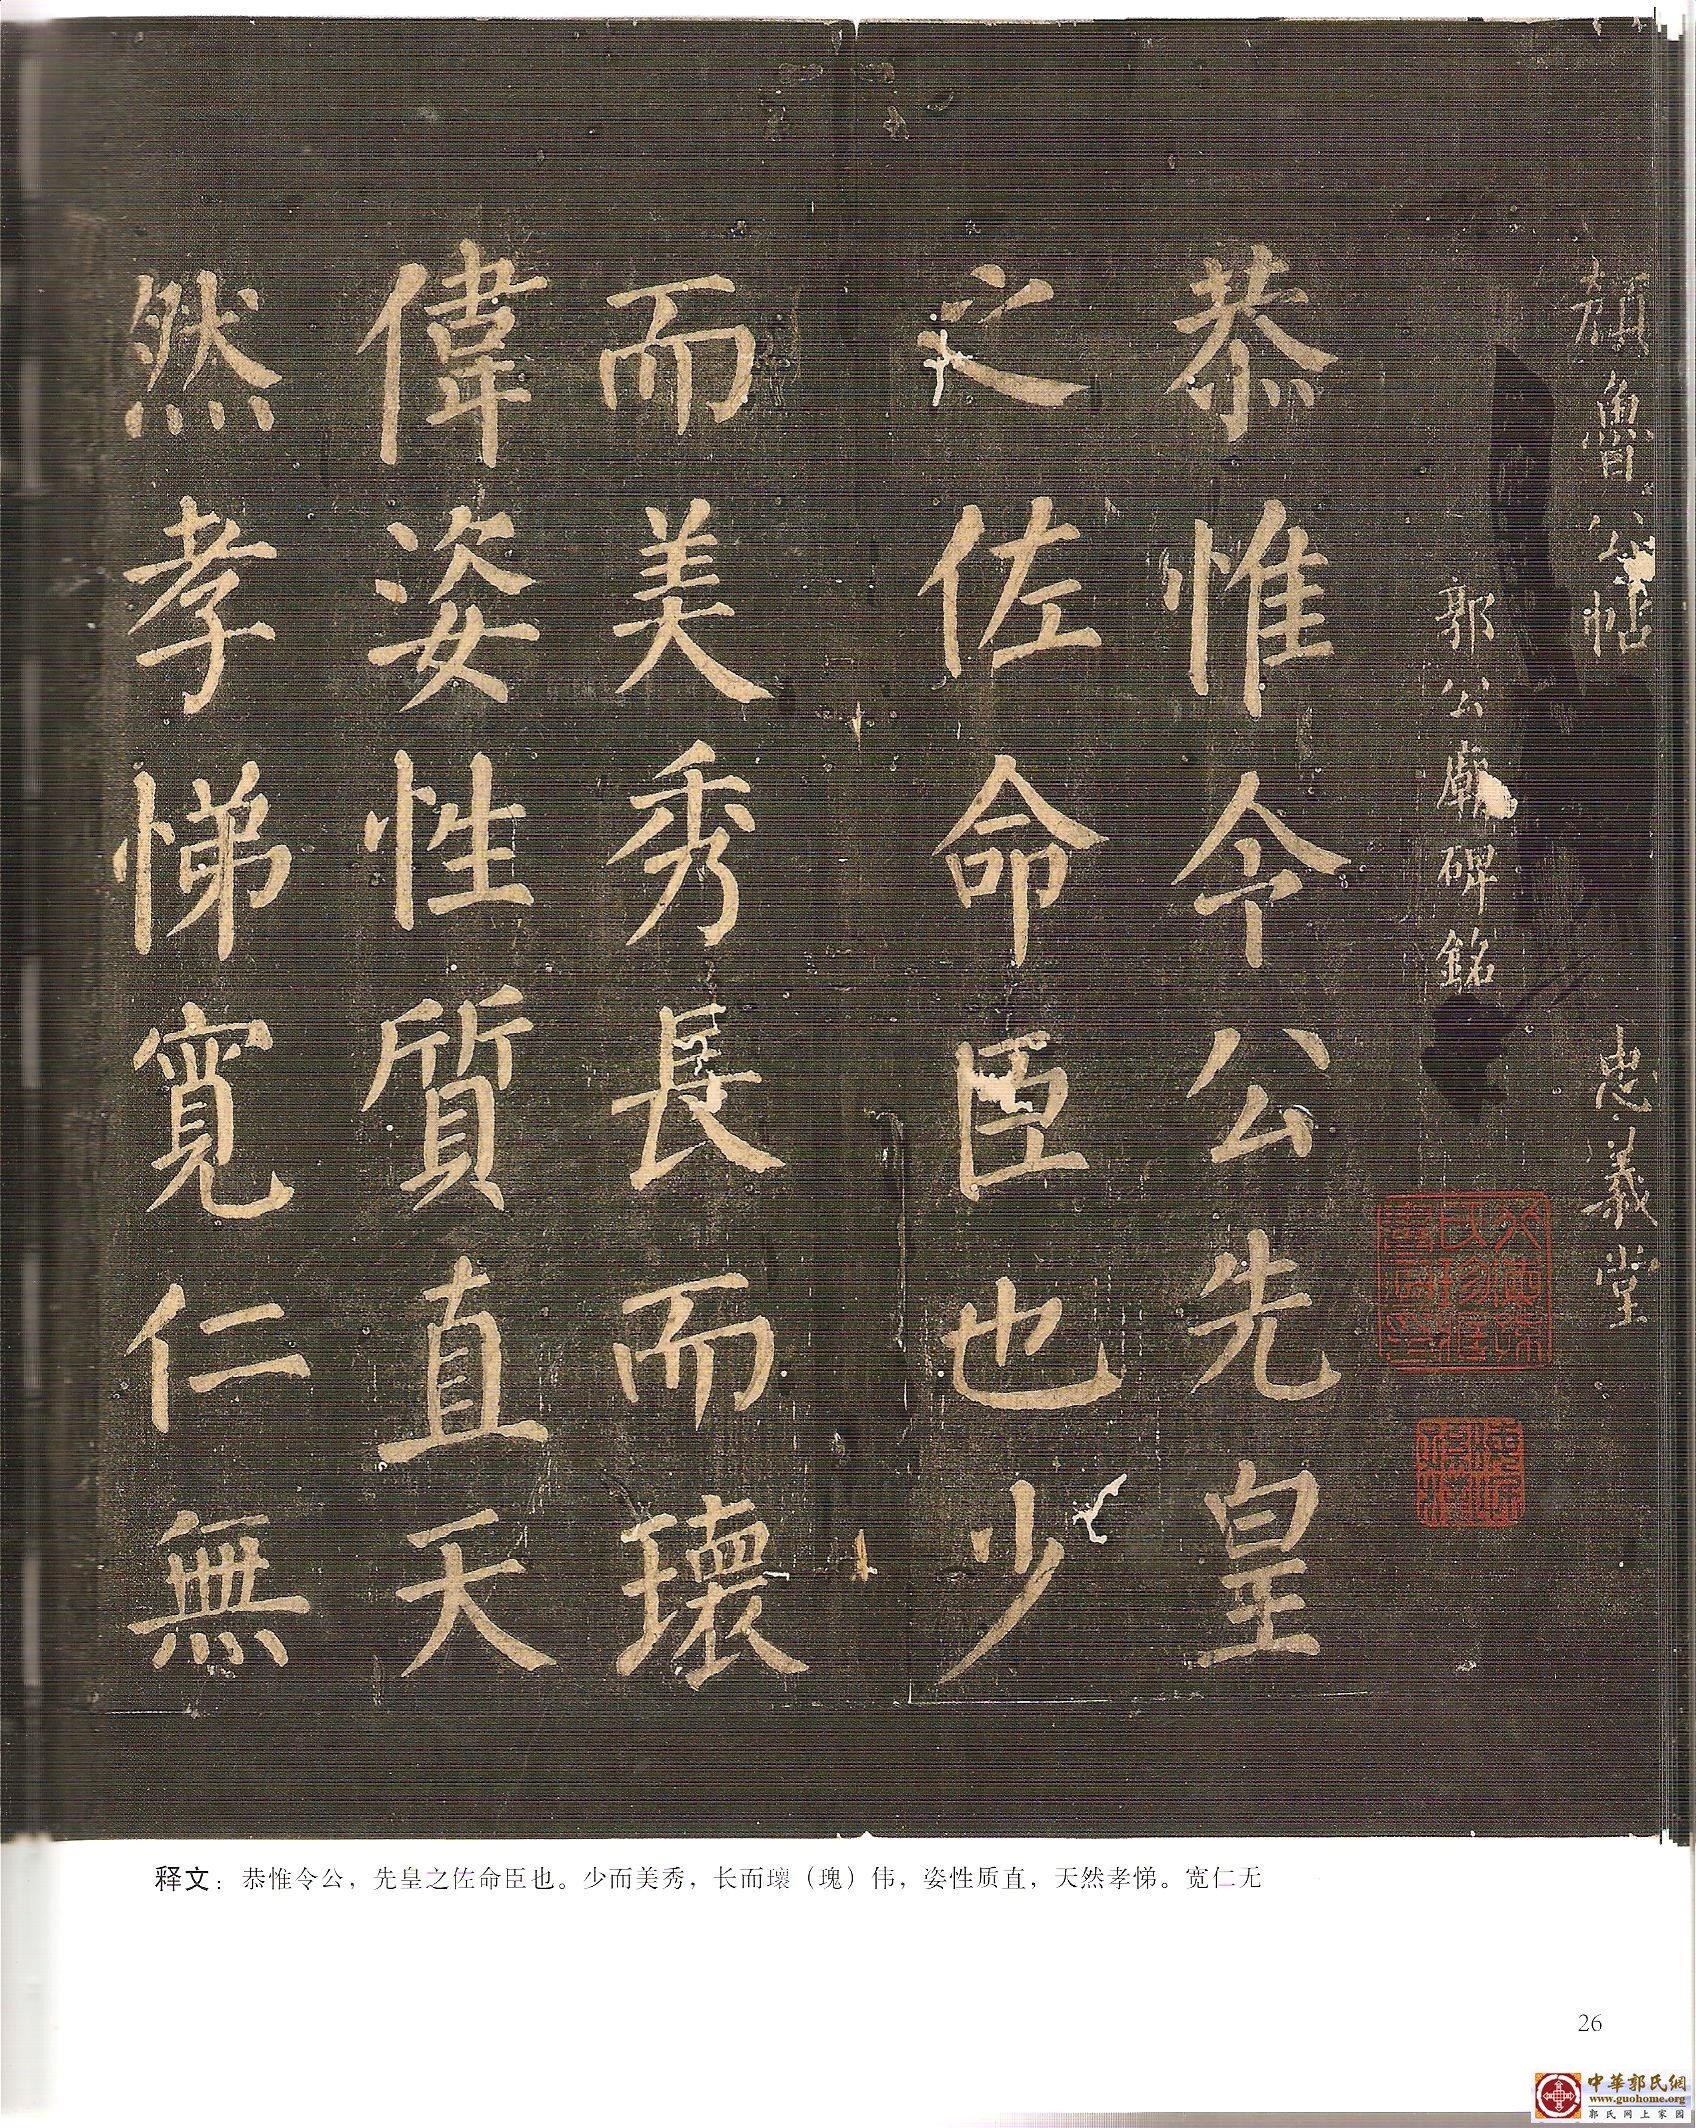 顔魯公帖　忠義堂
郭公廟碑銘
恭惟令公先皇
之佐命臣也少
而美秀長而瓌
偉姿性質直天
然孝悌寬仁無
释文：恭惟令公，先皇之佐命臣也。少而美秀，长而瓌（瑰）伟，姿性质直，天然孝悌。宽仁无
26
中華郭氏網
www.guohome.org
郭氏网上家园